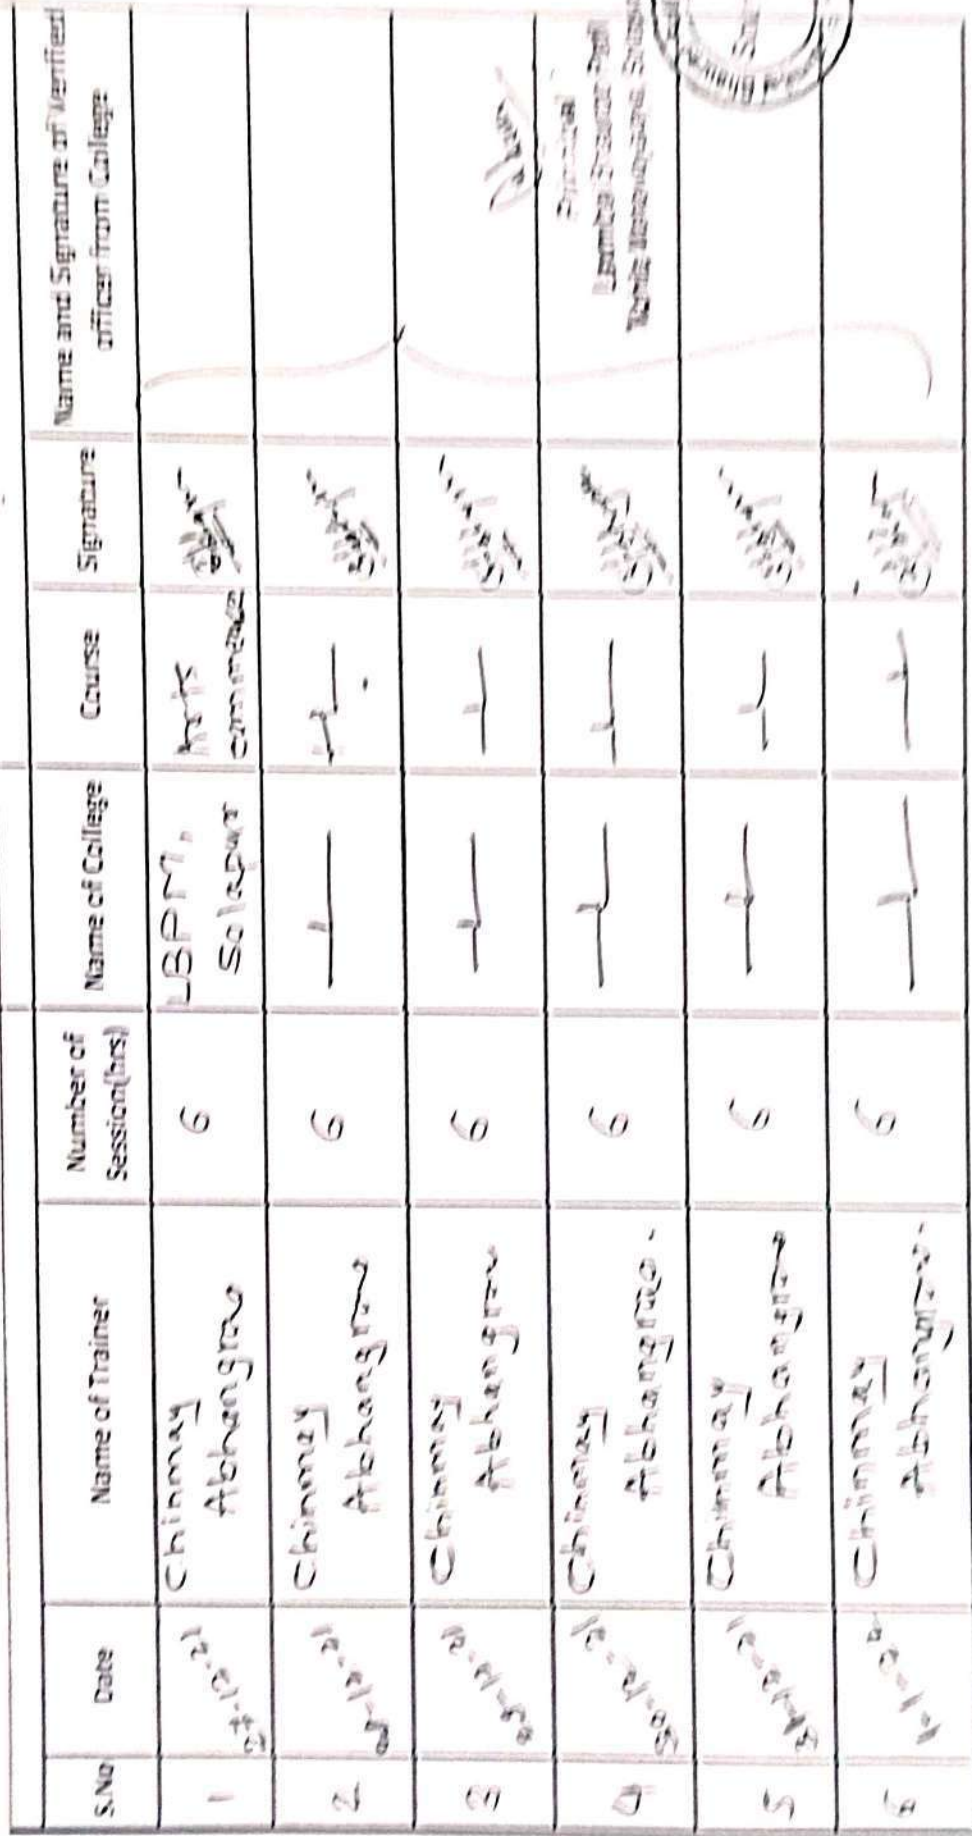 S.No Date Name of Trainer Number of Session(hrs) Name of College Course Signature Name and Signature of Verified officer from College
1 27-12-21 Chinmay Abhangrao 6 LBPM, Solapur Arts commerce
2 Chinmay Abhangrao 6
3 Chinmay Abhangrao 6
4 30-12-21 Chinmay Abhangrao. 6
5 31-12-21 Chinmay Abhangrao 6
6 Chinmay Abhangrao. 6
Principal